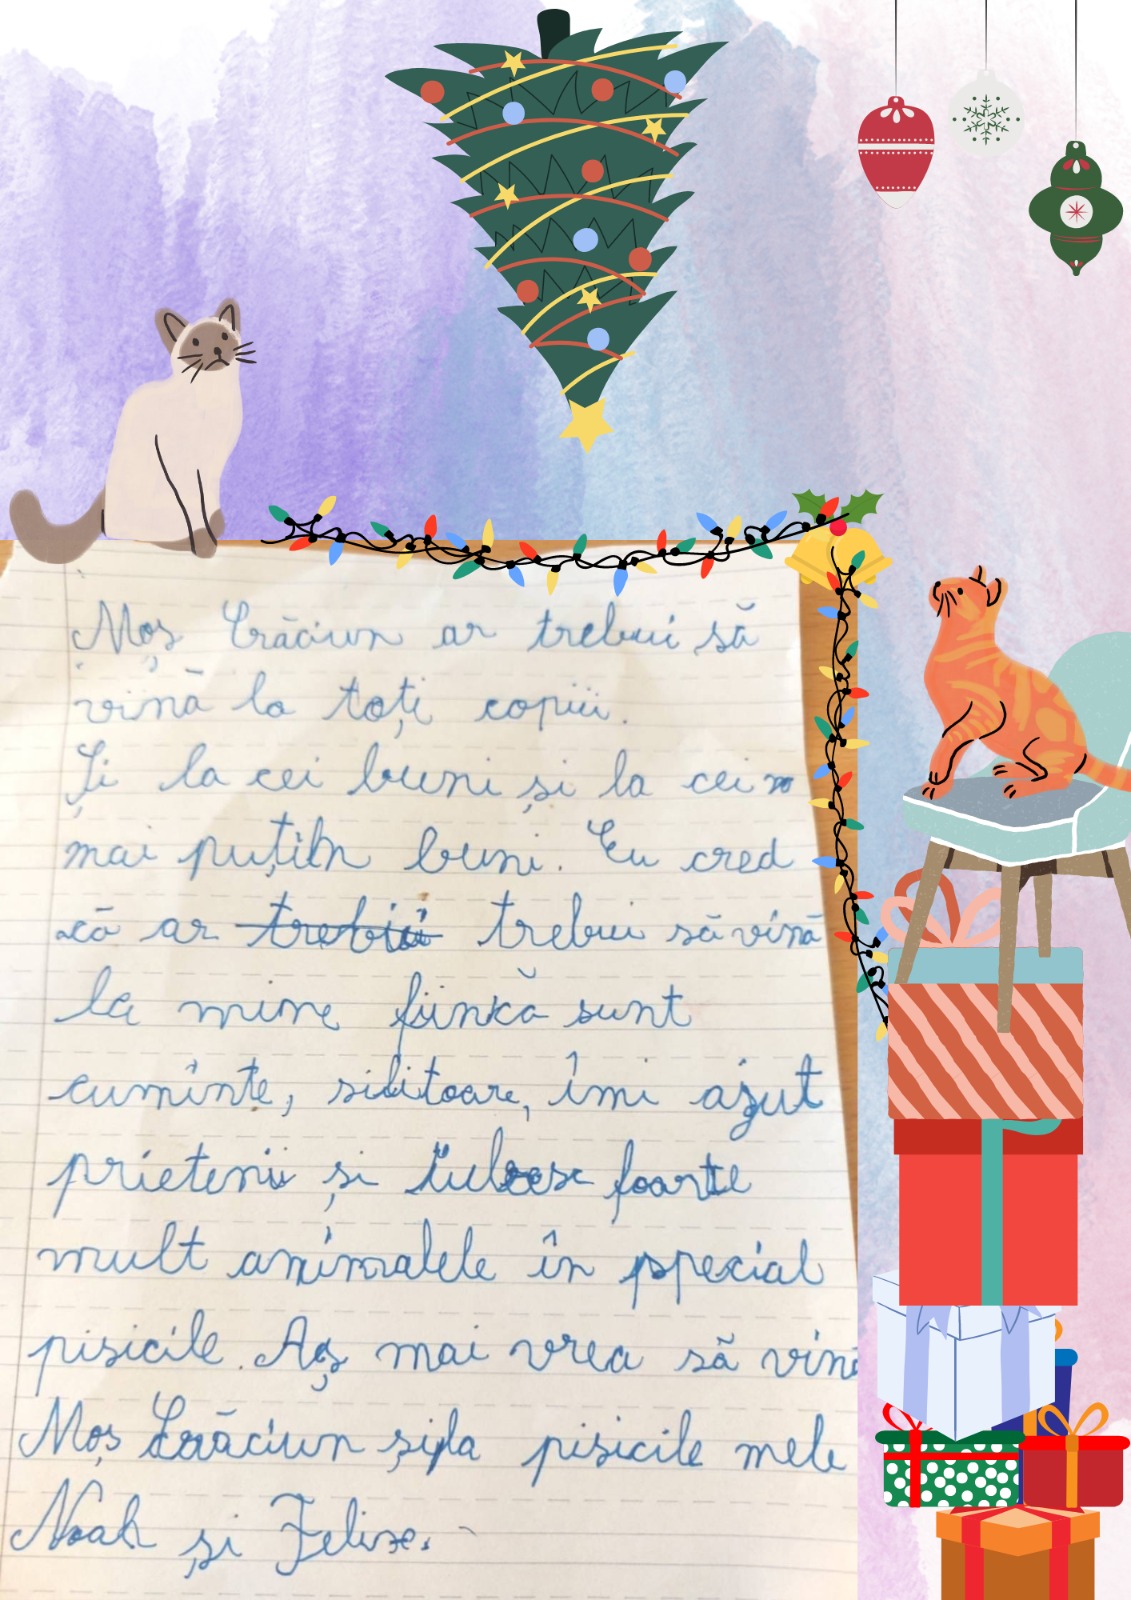 Moș Crăciun ar trebui să
vină la toți copiii.
Și la cei buni și la cei
mai puțin buni. Eu cred
că ar trebui trebui să vină
la mine fiinkă sunt
cuminte, silitoare, îmi ajut
prietenii și iubesc foarte
mult animalele în special
pisicile. Aș mai vrea să vină
Moș Crăciun și la pisicile mele
Noah și Felixe.